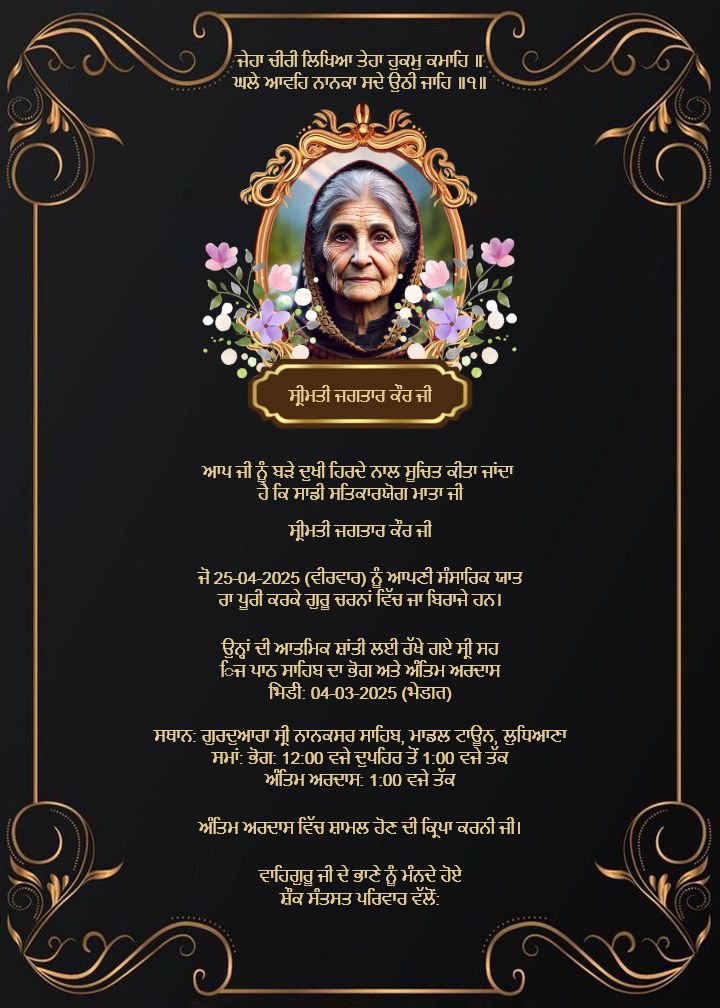 ਜੇਹਾ ਚੀਰੀ ਲਿਖਿਆ ਤੇਹਾ ਹੁਕਮੁ ਕਮਾਹਿ ॥
ਘਲੇ ਆਵਹਿ ਨਾਨਕਾ ਸਦੇ ਉਠੀ ਜਾਹਿ ॥੧॥
ਸ੍ਰੀਮਤੀ ਜਗਤਾਰ ਕੌਰ ਜੀ
ਆਪ ਜੀ ਨੂੰ ਬੜੇ ਦੁਖੀ ਹਿਰਦੇ ਨਾਲ ਸੂਚਿਤ ਕੀਤਾ ਜਾਂਦਾ
ਹੈ ਕਿ ਸਾਡੀ ਸਤਿਕਾਰਯੋਗ ਮਾਤਾ ਜੀ
ਸ੍ਰੀਮਤੀ ਜਗਤਾਰ ਕੌਰ ਜੀ
ਜੋ 25-04-2025 (ਵੀਰਵਾਰ) ਨੂੰ ਆਪਣੀ ਸੰਸਾਰਿਕ ਯਾਤ
ਰਾ ਪੂਰੀ ਕਰਕੇ ਗੁਰੂ ਚਰਨਾਂ ਵਿੱਚ ਜਾ ਬਿਰਾਜੇ ਹਨ।
ਉਨ੍ਹਾਂ ਦੀ ਆਤਮਿਕ ਸ਼ਾਂਤੀ ਲਈ ਰੱਖੇ ਗਏ ਸ੍ਰੀ ਸਹ
ਿਜ ਪਾਠ ਸਾਹਿਬ ਦਾ ਭੋਗ ਅਤੇ ਅੰਤਿਮ ਅਰਦਾਸ
ਮਿਤੀ: 04-03-2025 (ਐਤਵਾਰ)
ਸਥਾਨ: ਗੁਰਦੁਆਰਾ ਸ੍ਰੀ ਨਾਨਕਸਰ ਸਾਹਿਬ, ਮਾਡਲ ਟਾਊਨ, ਲੁਧਿਆਣਾ
ਸਮਾਂ: ਭੋਗ: 12:00 ਵਜੇ ਦੁਪਹਿਰ ਤੋਂ 1:00 ਵਜੇ ਤੱਕ
ਅੰਤਿਮ ਅਰਦਾਸ: 1:00 ਵਜੇ ਤੱਕ
ਅੰਤਿਮ ਅਰਦਾਸ ਵਿੱਚ ਸ਼ਾਮਲ ਹੋਣ ਦੀ ਕ੍ਰਿਪਾ ਕਰਨੀ ਜੀ।
ਵਾਹਿਗੁਰੂ ਜੀ ਦੇ ਭਾਣੇ ਨੂੰ ਮੰਨਦੇ ਹੋਏ
ਸ਼ੌਕ ਸੰਤਸਤ ਪਰਿਵਾਰ ਵੱਲੋਂ: